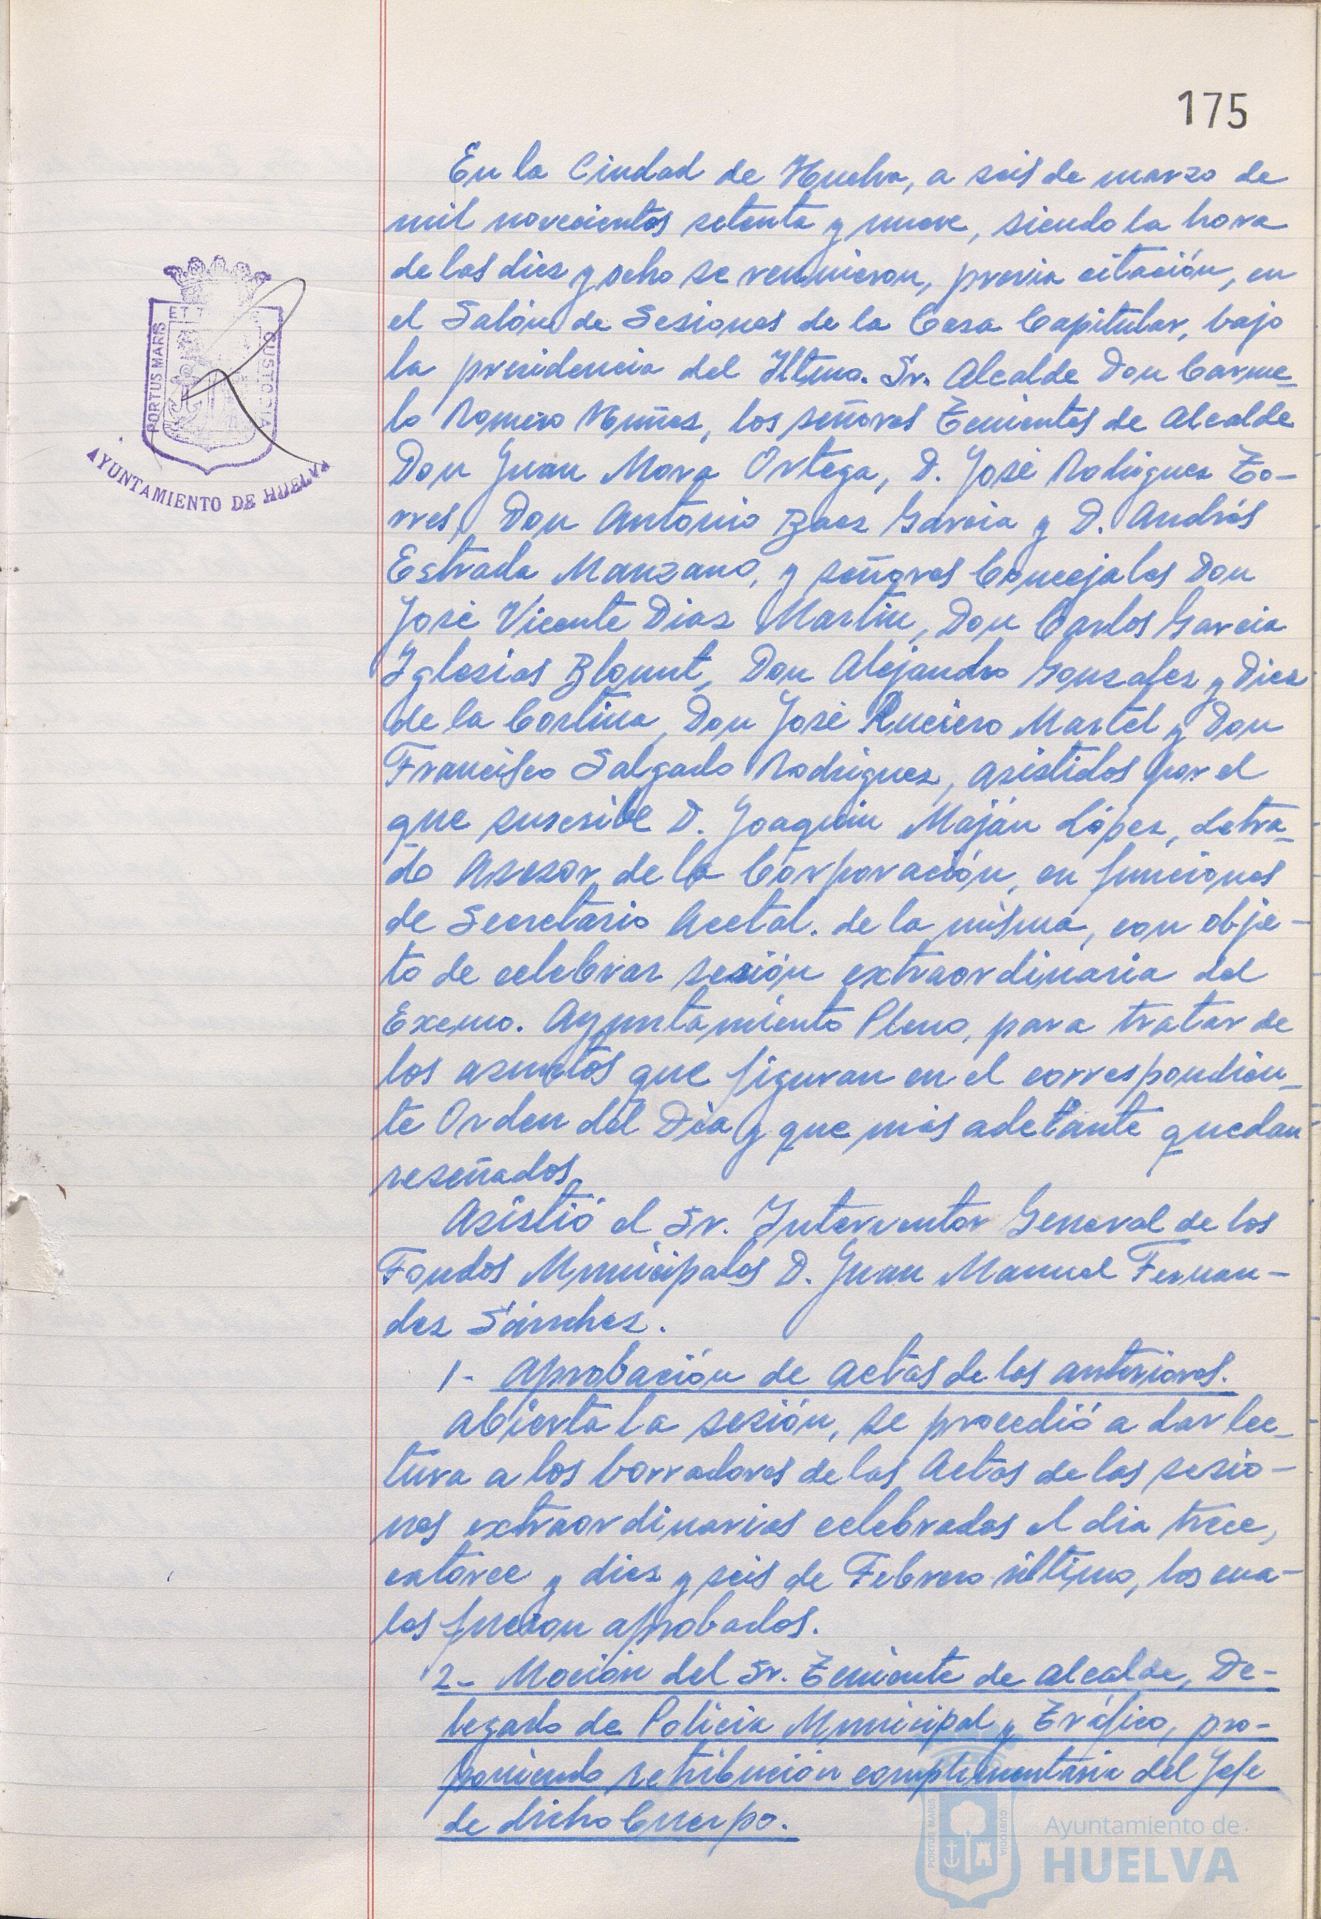 175
En la Ciudad de Huelva, a seis de marzo de
mil novecientos setenta y nueve, siendo la hora
de las diez y ocho se reunieron, previa citación, en
el Salón de Sesiones de la Casa Capitular, bajo
la presidencia del Iltmo. Sr. Alcalde Don Carme-
lo Romero Núñez, los señores Tenientes de Alcalde
Don Juan Mora Ortega, D. José Rodríguez To-
rres, Don Antonio Baez García y D. Andrés
Estrada Manzano, y señores Concejales Don
José Vicente Diaz Martín, Don Carlos García
Iglesias Blount, Don Alejandro Gonzalez y Diez
de la Cortina, Don José Ruciero Martel y Don
Francisco Salgado Rodriguez, asistidos por el
que suscribe D. Joaquín Maján López, Letra-
do Asesor de la Corporación, en funciones
de Secretario Acctal. de la misma, con obje-
to de celebrar sesión extraordinaria del
Excmo. Ayuntamiento Pleno, para tratar de
los asuntos que figuran en el correspondien-
te Orden del Día y que más adelante quedan
reseñados.
Asistió el Sr. Interventor General de los
Fondos Municipales D. Juan Manuel Fernan-
dez Sánchez.
1- Aprobación de actas de las anteriores.
Abierta la sesión, se procedió a dar lec-
tura a los borradores de las Actas de las sesio-
nes extraordinarias celebradas el dia trece,
catorce y diez y seis de Febrero último, los cua-
les fueron aprobados.
2- Moción del Sr. Teniente de Alcalde, De-
legado de Policía Municipal y Tráfico, pro-
poniendo retribución complementaria del Jefe
de dicho Cuerpo.
PORTUS MARIS
ET T
CUSTODIA
AYUNTAMIENTO DE HUELVA
PORTUS MARIS
CUSTODIA
Ayuntamiento de
HUELVA